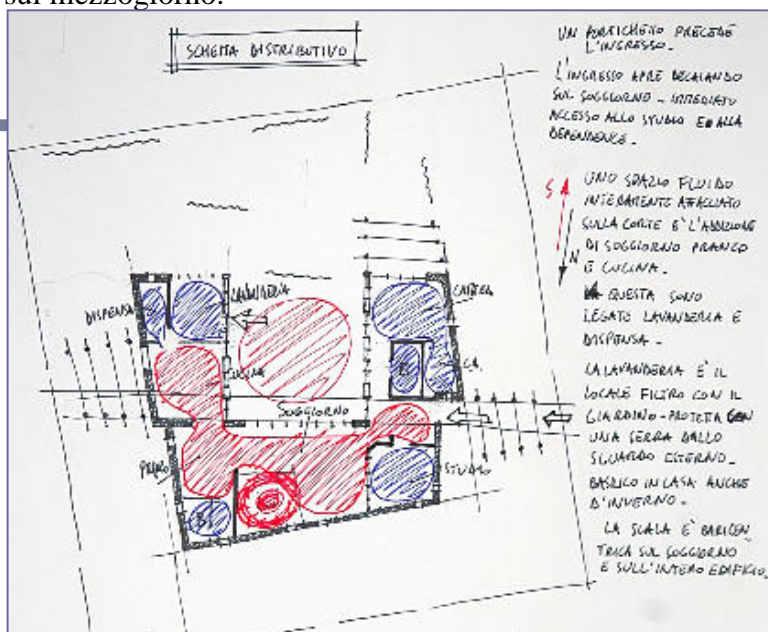 sul mezzogiorno.
SCHEMA DISTRIBUTIVO
UN PORTICHETO PRECEDE
L'INGRESSO.
L'INGRESSO APRE DECALANDO
SUL SOGGIORNO - IMMEDIATO
ACCESSO ALLO STUDIO E ALLA
DEPENDENCE.
S
N
UNO SPAZIO FLUIDO
INTERAMENTE AFFACCIATO
SULLA CORTE E' L'ADDIZIONE
DI SOGGIORNO PRANZO
E CUCINA.
A QUESTA SONO
LEGATO LAVANDERIA E
DISPENSA.
LA LAVANDERIA E' IL
LOCALE FILTRO CON IL
GIARDINO - PROTETTA CON
UNA SERRA DALLO
SGUARDO ESTERNO.
BASILICO IN CASA ANCHE
D'INVERNO.
LA SCALA E' BARICEN
TRICA SUL SOGGIORNO
E SULL'INTERO EDIFICIO.
DISPENSA
LAVANDERIA
CAMERA
CUCINA
SOGGIORNO
PRANZO
STUDIO